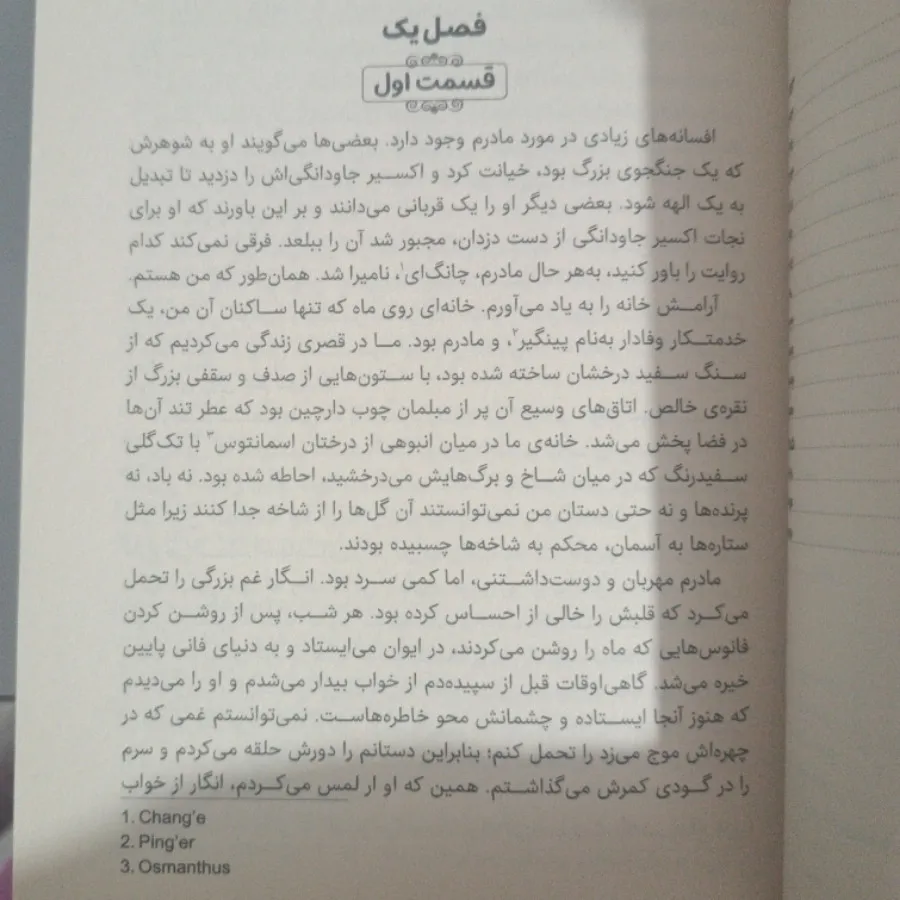 فصل یک
قسمت اول
افسانه‌های زیادی در مورد مادرم وجود دارد. بعضی‌ها می‌گویند او به شوهرش
که یک جنگجوی بزرگ بود، خیانت کرد و اکسیر جاودانگی‌اش را دزدید تا تبدیل
به یک الهه شود. بعضی دیگر او را یک قربانی می‌دانند و بر این باورند که او برای
نجات اکسیر جاودانگی از دست دزدان، مجبور شد آن را ببلعد. فرقی نمی‌کند کدام
روایت را باور کنید، به‌هر حال مادرم، چانگ‌ای۱، نامیرا شد. همان‌طور که من هستم.
آرامش خانه را به یاد می‌آورم. خانه‌ای روی ماه که تنها ساکنان آن من، یک
خدمتکار وفادار به‌نام پینگیر۲، و مادرم بود. ما در قصری زندگی می‌کردیم که از
سنگ سفید درخشان ساخته شده بود، با ستون‌هایی از صدف و سقفی بزرگ از
نقره‌ی خالص. اتاق‌های وسیع آن پر از مبلمان چوب دارچین بود که عطر تند آن‌ها
در فضا پخش می‌شد. خانه‌ی ما در میان انبوهی از درختان اسمانتوس۳ با تک‌گلی
سفیدرنگ که در میان شاخ و برگ‌هایش می‌درخشید، احاطه شده بود. نه باد، نه
پرنده‌ها و نه حتی دستان من نمی‌توانستند آن گل‌ها را از شاخه جدا کنند زیرا مثل
ستاره‌ها به آسمان، محکم به شاخه‌ها چسبیده بودند.
مادرم مهربان و دوست‌داشتنی، اما کمی سرد بود. انگار غم بزرگی را تحمل
می‌کرد که قلبش را خالی از احساس کرده بود. هر شب، پس از روشن کردن
فانوس‌هایی که ماه را روشن می‌کردند، در ایوان می‌ایستاد و به دنیای فانی پایین
خیره می‌شد. گاهی‌اوقات قبل از سپیده‌دم از خواب بیدار می‌شدم و او را می‌دیدم
که هنوز آنجا ایستاده و چشمانش محو خاطره‌هاست. نمی‌توانستم غمی که در
چهره‌اش موج می‌زد را تحمل کنم؛ بنابراین دستانم را دورش حلقه می‌کردم و سرم
را در گودی کمرش می‌گذاشتم. همین که او ار لمس می‌کردم، انگار از خواب
1. Chang’e
2. Ping’er
3. Osmanthus